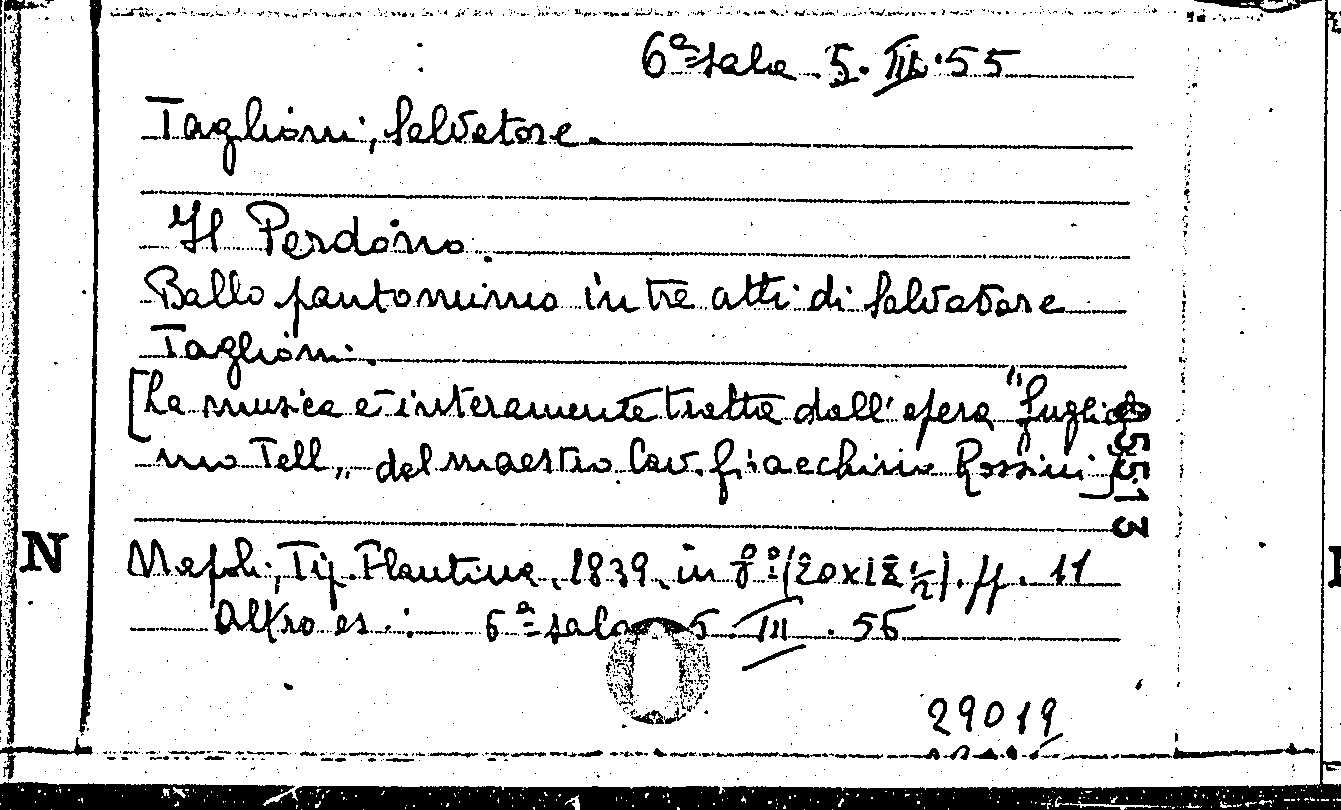 6ª sala 5. III. 55
Taglioni, Salvatore.
Il Perdono.
Ballo pantomimo in tre atti di Salvatore
Taglioni.
[La musica è interamente tratta dall'opera "Gugliel
mo Tell„ del maestro Cav. Giacchino Rossini]
5513
N
Napoli, Tip. Flautina, 1839, in 8º (20x12 ½). pp. 11
Altro es.: 6ª sala 5. III. 56
29019